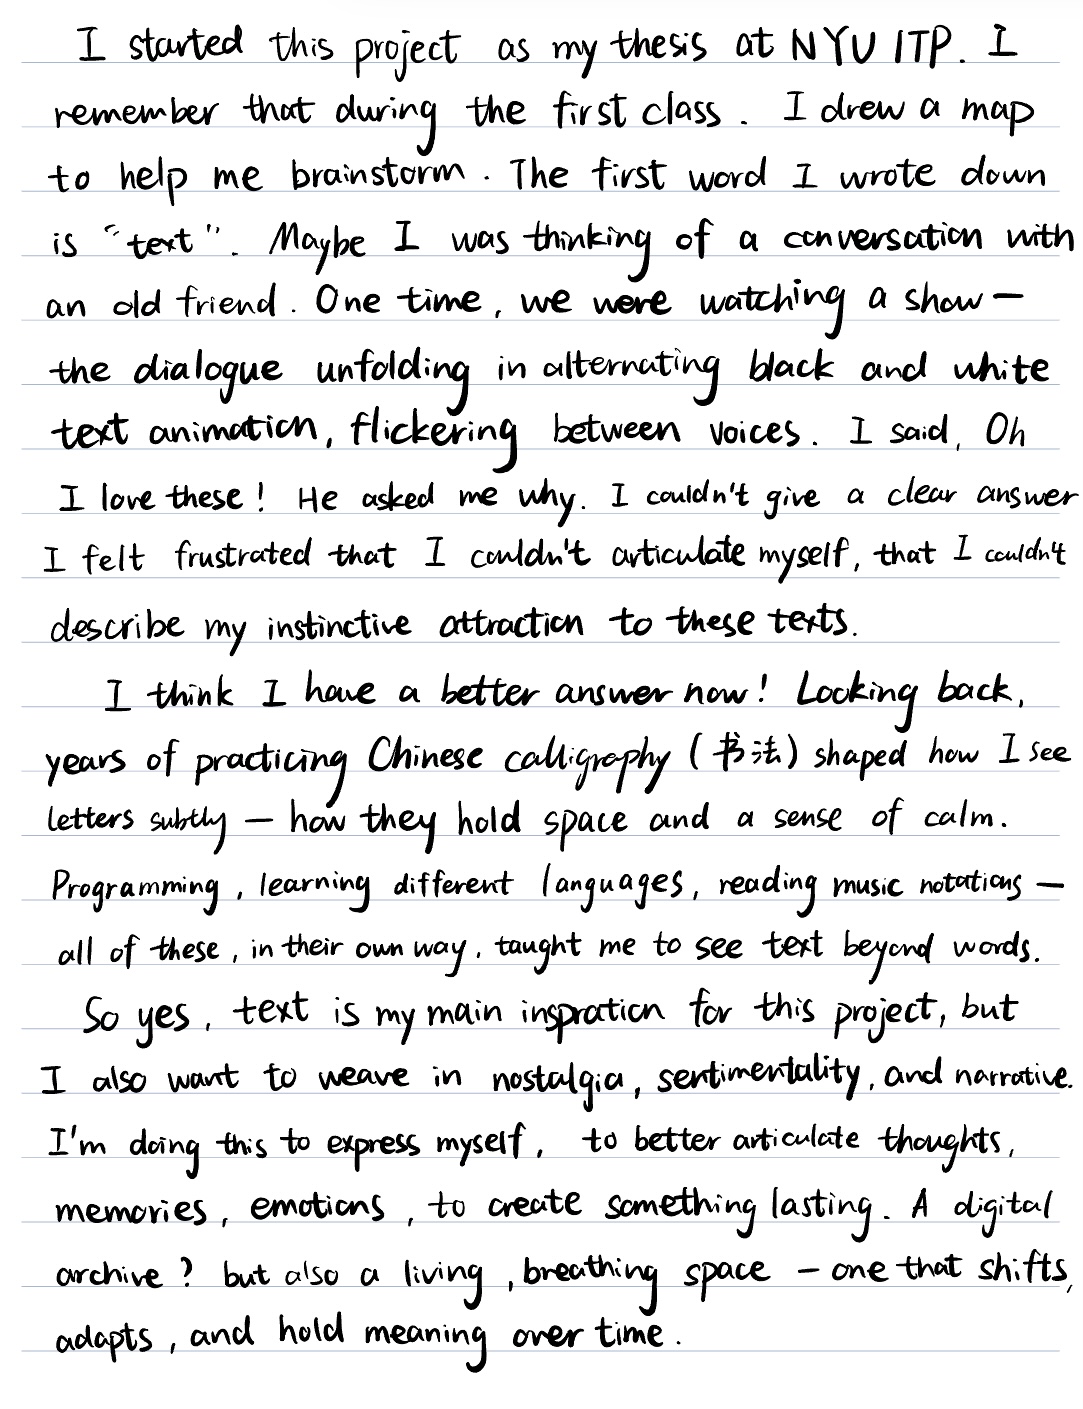 I started this project as my thesis at NYU ITP. I
remember that during the first class. I drew a map
to help me brainstorm. The first word I wrote down
is "text". Maybe I was thinking of a conversation with
an old friend. One time, we were watching a show —
the dialogue unfolding in alternating black and white
text animation, flickering between voices. I said, Oh
I love these! He asked me why. I couldn't give a clear answer
I felt frustrated that I couldn't articulate myself, that I couldn't
describe my instinctive attraction to these texts.
I think I have a better answer now! Looking back,
years of practicing Chinese calligraphy (书法) shaped how I see
letters subtly — how they hold space and a sense of calm.
Programming, learning different languages, reading music notations —
all of these, in their own way, taught me to see text beyond words.
So yes, text is my main inspration for this project, but
I also want to weave in nostalgia, sentimentality, and narrative.
I'm doing this to express myself, to better articulate thoughts,
memories, emotions, to create something lasting. A digital
archive? but also a living, breathing space – one that shifts,
adapts, and hold meaning over time.